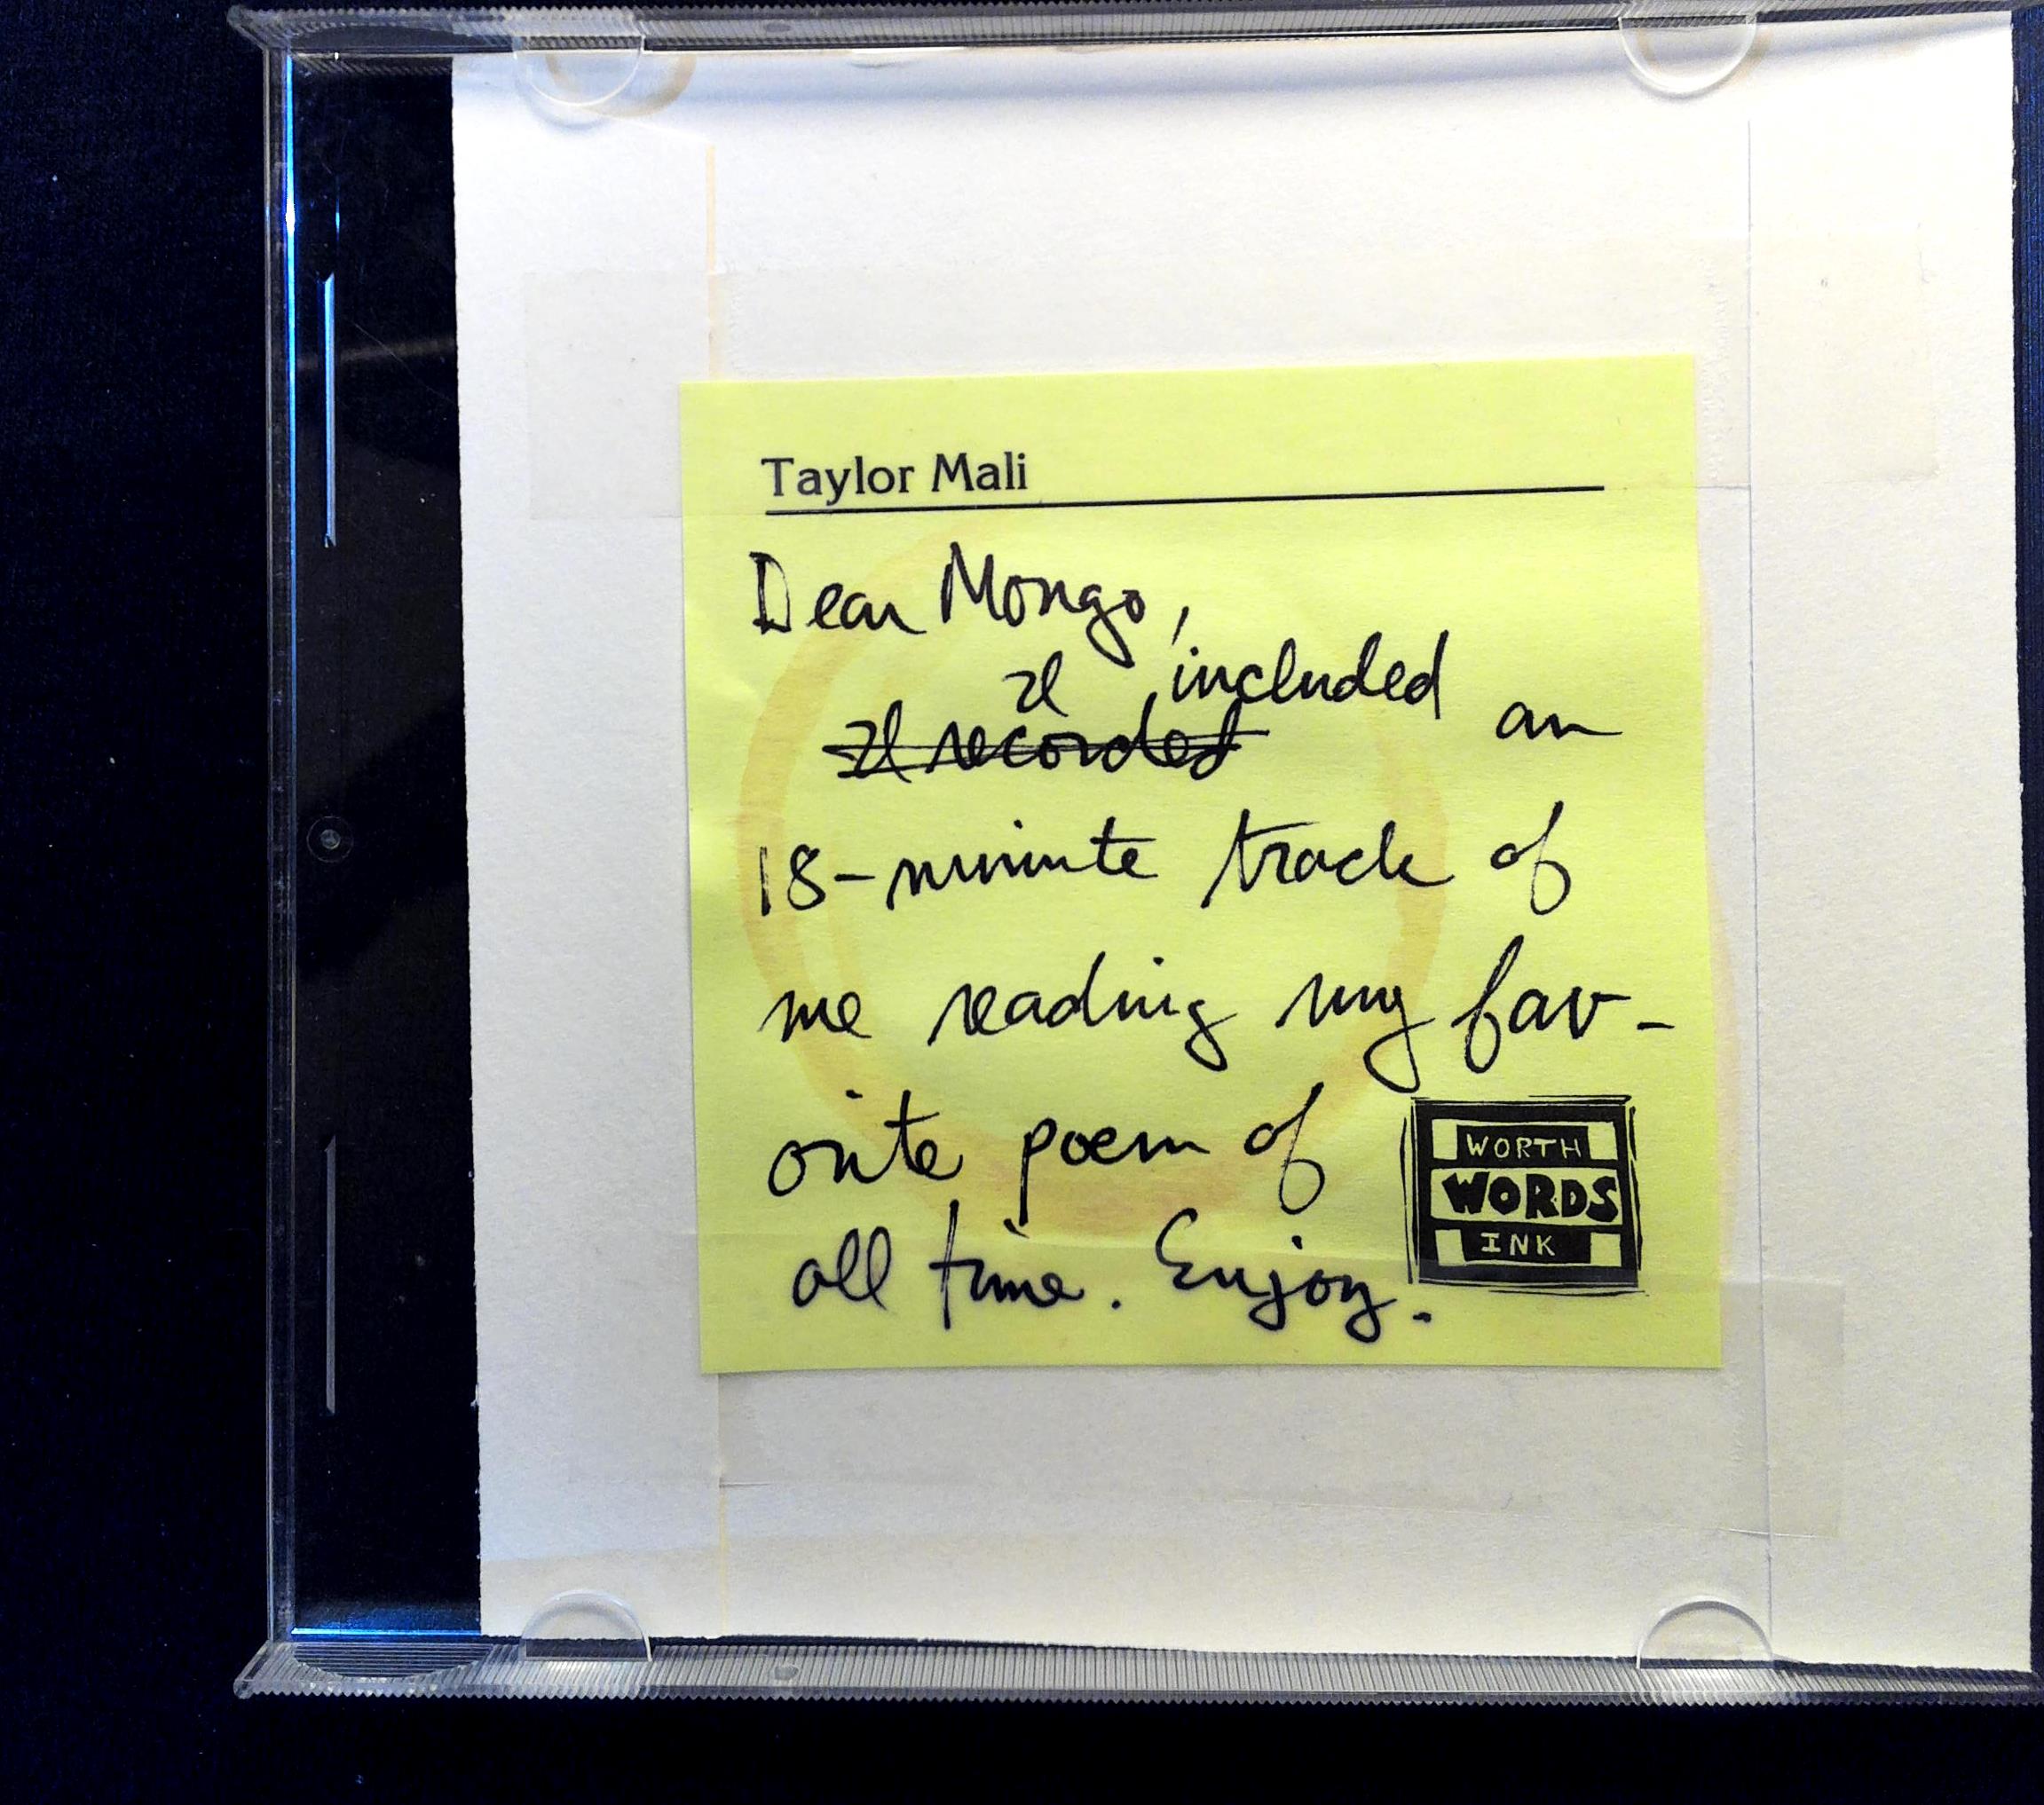 Taylor Mali
Dear Mongo,
I included an
I recorded
18-minute track of
me reading my fav-
orite poem of
all time. Enjoy.
WORTH
WORDS
INK